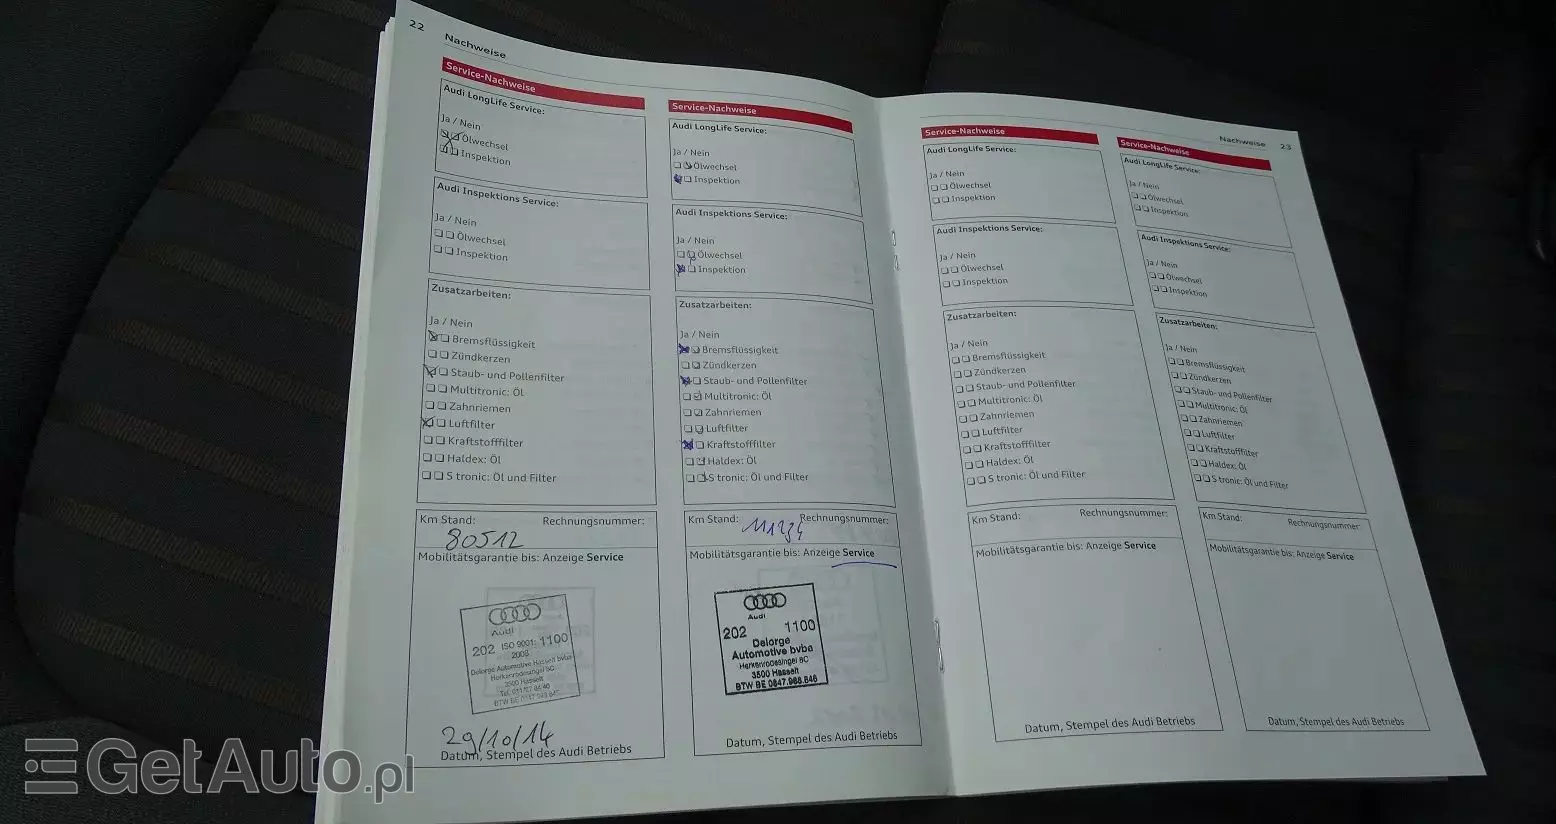 22
Nachweise
Service-Nachweise
Audi LongLife Service:
Ja / Nein
Ölwechsel
Inspektion
Audi Inspektions Service:
Ja / Nein
Ölwechsel
Inspektion
Zusatzarbeiten:
Ja / Nein
Bremsflüssigkeit
Zündkerzen
Staub- und Pollenfilter
Multitronic: Öl
Zahnriemen
Luftfilter
Kraftstofffilter
Haldex: Öl
S tronic: Öl und Filter
Km Stand: Rechnungsnummer:
80512
Mobilitätsgarantie bis: Anzeige Service
Audi
202 ISO 9001: 1100
2008
Delorge Automotive Hasselt bvba
Herkenrodesingel 8C
3500 Hasselt
29/10/14
Datum, Stempel des Audi Betriebs
Service-Nachweise
Audi LongLife Service:
Ja / Nein
Ölwechsel
Inspektion
Audi Inspektions Service:
Ja / Nein
Ölwechsel
Inspektion
Zusatzarbeiten:
Ja / Nein
Bremsflüssigkeit
Zündkerzen
Staub- und Pollenfilter
Multitronic: Öl
Zahnriemen
Luftfilter
Kraftstofffilter
Haldex: Öl
S tronic: Öl und Filter
Km Stand: Rechnungsnummer:
Mobilitätsgarantie bis: Anzeige Service
Audi
202 1100
Delorge
Automotive bvba
Herkenrodesingel 8C
3500 Hasselt
BTW BE 0847.968.846
Datum, Stempel des Audi Betriebs
Nachweise 23
Service-Nachweise
Audi LongLife Service:
Ja / Nein
Ölwechsel
Inspektion
Audi Inspektions Service:
Ja / Nein
Ölwechsel
Inspektion
Zusatzarbeiten:
Ja / Nein
Bremsflüssigkeit
Zündkerzen
Staub- und Pollenfilter
Multitronic: Öl
Zahnriemen
Luftfilter
Kraftstofffilter
Haldex: Öl
S tronic: Öl und Filter
Km Stand: Rechnungsnummer:
Mobilitätsgarantie bis: Anzeige Service
Datum, Stempel des Audi Betriebs
Service-Nachweise
Audi LongLife Service:
Ja / Nein
Ölwechsel
Inspektion
Audi Inspektions Service:
Ja / Nein
Ölwechsel
Inspektion
Zusatzarbeiten:
Ja / Nein
Bremsflüssigkeit
Zündkerzen
Staub- und Pollenfilter
Multitronic: Öl
Zahnriemen
Luftfilter
Kraftstofffilter
Haldex: Öl
S tronic: Öl und Filter
Km Stand: Rechnungsnummer:
Mobilitätsgarantie bis: Anzeige Service
Datum, Stempel des Audi Betriebs
GetAuto.pl